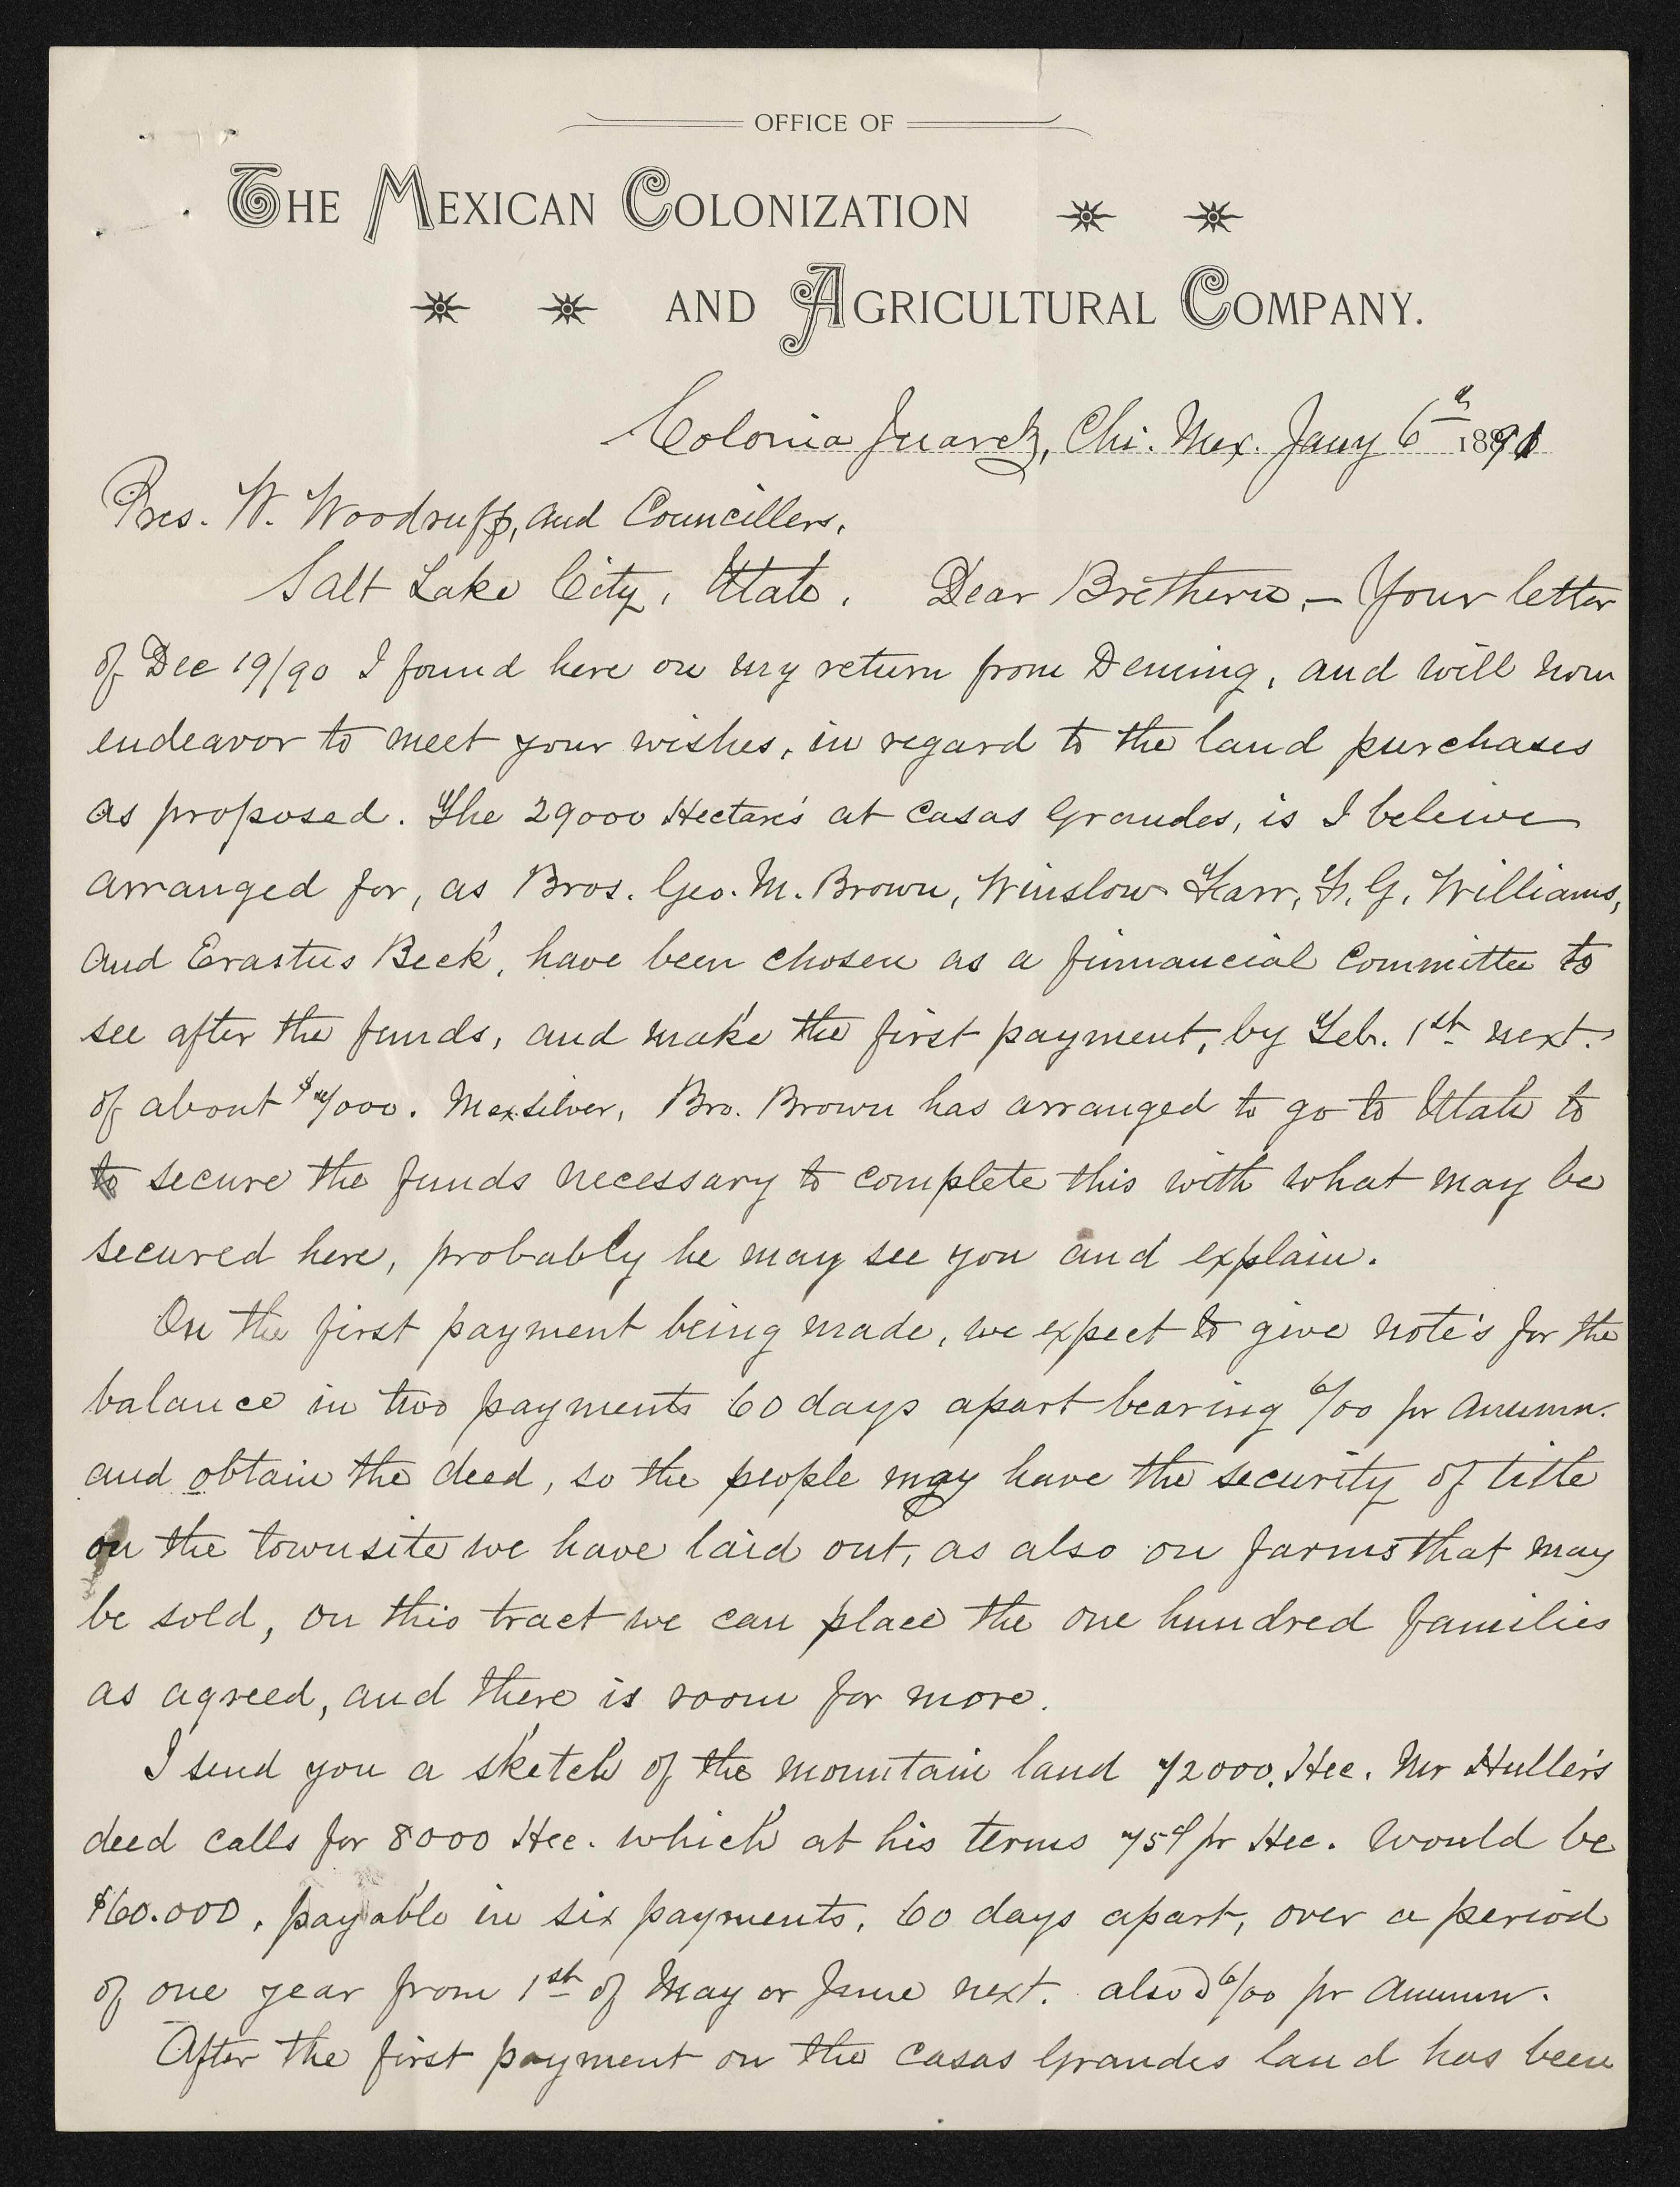 OFFICE OF
THE MEXICAN COLONIZATION
AND AGRICULTURAL COMPANY.
Colonia Juarez, Chi. Mex. Jany 6th 1891
Pres. W. Woodruff, and Councillers,
Salt Lake City, Utah. Dear Bretheren,— Your letter
of Dec 19/90 I found here on my return from Deming, and will now
endeavor to meet your wishes, in regard to the land purchases
as proposed. The 29000 Hectare's at Casas Grandes, is I beleive
arranged for, as Bros. Geo. M. Brown, Winslow Farr, F. G. Williams,
and Erastus Beck, have been chosen as a finnancial Committee to
see after the funds, and make the first payment, by Feb. 1st next.
of about Mex silver, Bro. Brown has arranged to go to Utah to
to secure the funds necessary to complete this with what may be
secured here, probably he may see you and explain.
On the first payment being made, we expect to give note's for the
balance in two payments 60 days apart bearing 6/00 pr Annumn.
and obtain the deed, so the people may have the security of title
on the townsite we have laid out, as also on farms that may
be sold, on this tract we can place the one hundred families
as agreed, and there is room for more.
I send you a sketch of the mountain land 72000. Hec. Mr Huller's
deed calls for 8000 Hec. which at his terms 75¢ pr Hec. would be
$60.000, payable in six payments, 60 days apart, over a period
of one year from 1st of May or June next. also 6/00 pr Annumn.
After the first payment on the Casas Grandes land has been